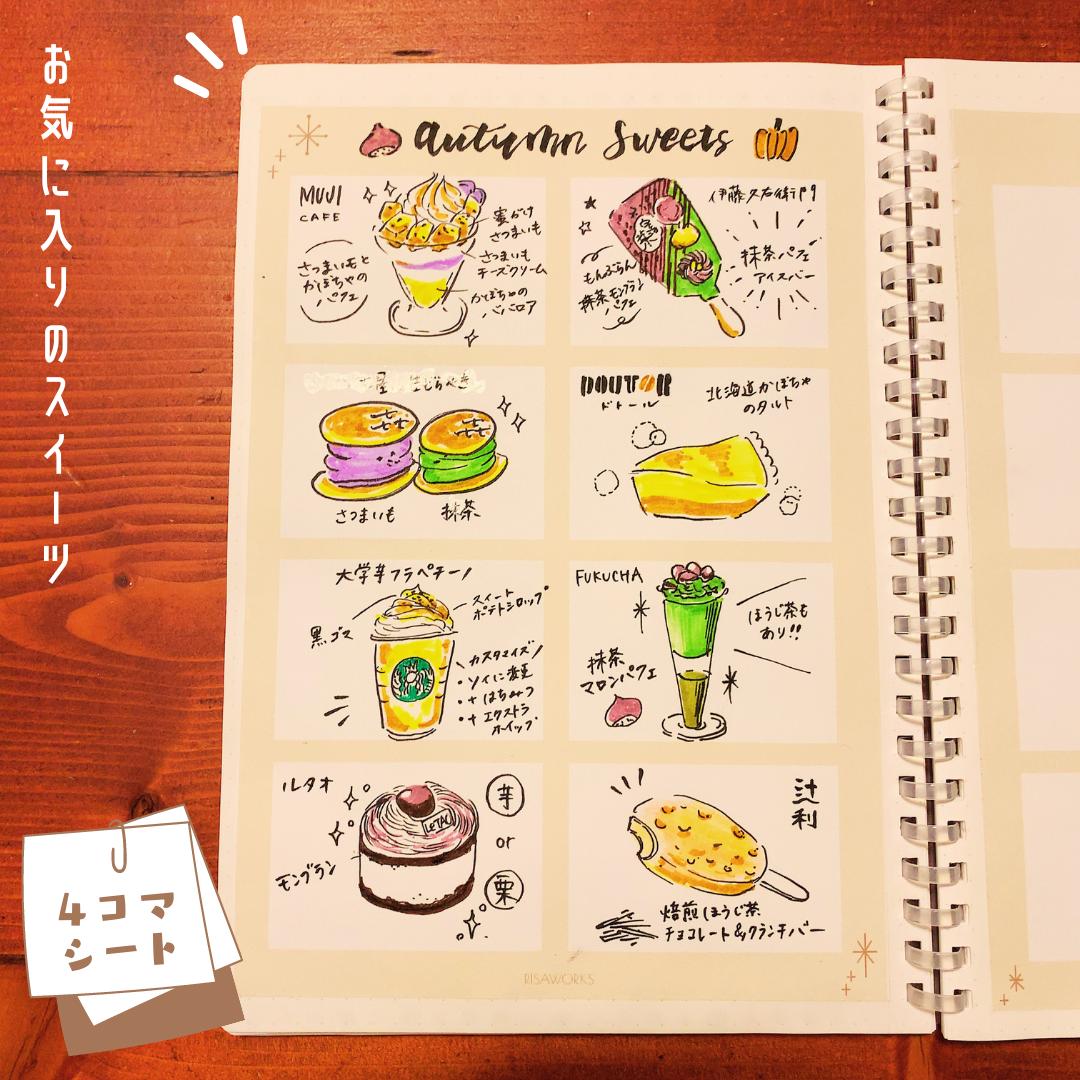 お気に入りのスイーツ
autumn Sweets
MUJI
CAFE
さつまいもと
かぼちゃの
パフェ
蜜がけ
さつまいも
さつまいも
チーズクリーム
かぼちゃの
ババロア
伊藤久右衛門
抹茶パフェ
アイスバー
もんぶらん
抹茶モンブラン
パフェ
生どらやき
さつまいも
抹茶
DOUTOR
ドトール
北海道かぼちゃ
のタルト
大学芋フラペチーノ
黒ゴマ
スイート
ポテトシロップ
カスタマイズ
・ソイに変更
・+はちみつ
・+エクストラ
ホイップ
FUKUCHA
ほうじ茶も
あり!!
抹茶
マロンパフェ
ルタオ
モンブラン
LeTAO
芋
or
栗
辻利
焙煎ほうじ茶
チョコレート&クランチバー
RISAWORKS
4コマ
シート